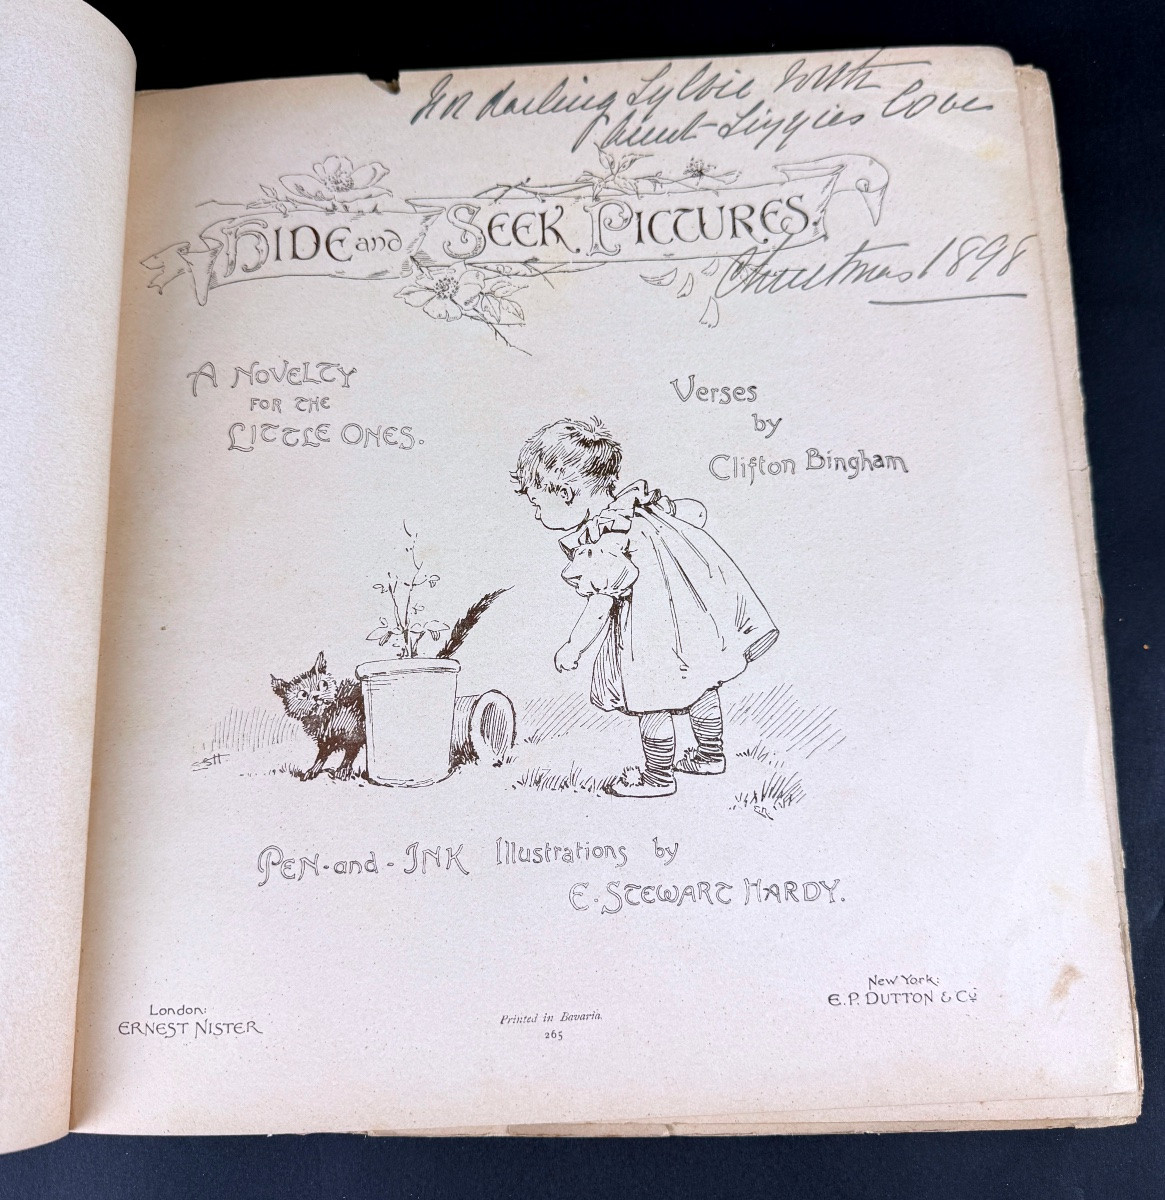 For darling Sylvie with
Aunt Lizzies love
HIDE and SEEK PICTURES.
Christmas 1898
A NOVELTY
FOR THE
LITTLE ONES.
Verses
by
Clifton Bingham
ESH
PEN-and-INK Illustrations by
E. STEWART HARDY.
London:
ERNEST NISTER
Printed in Bavaria.
265
New York:
E. P. DUTTON & Co